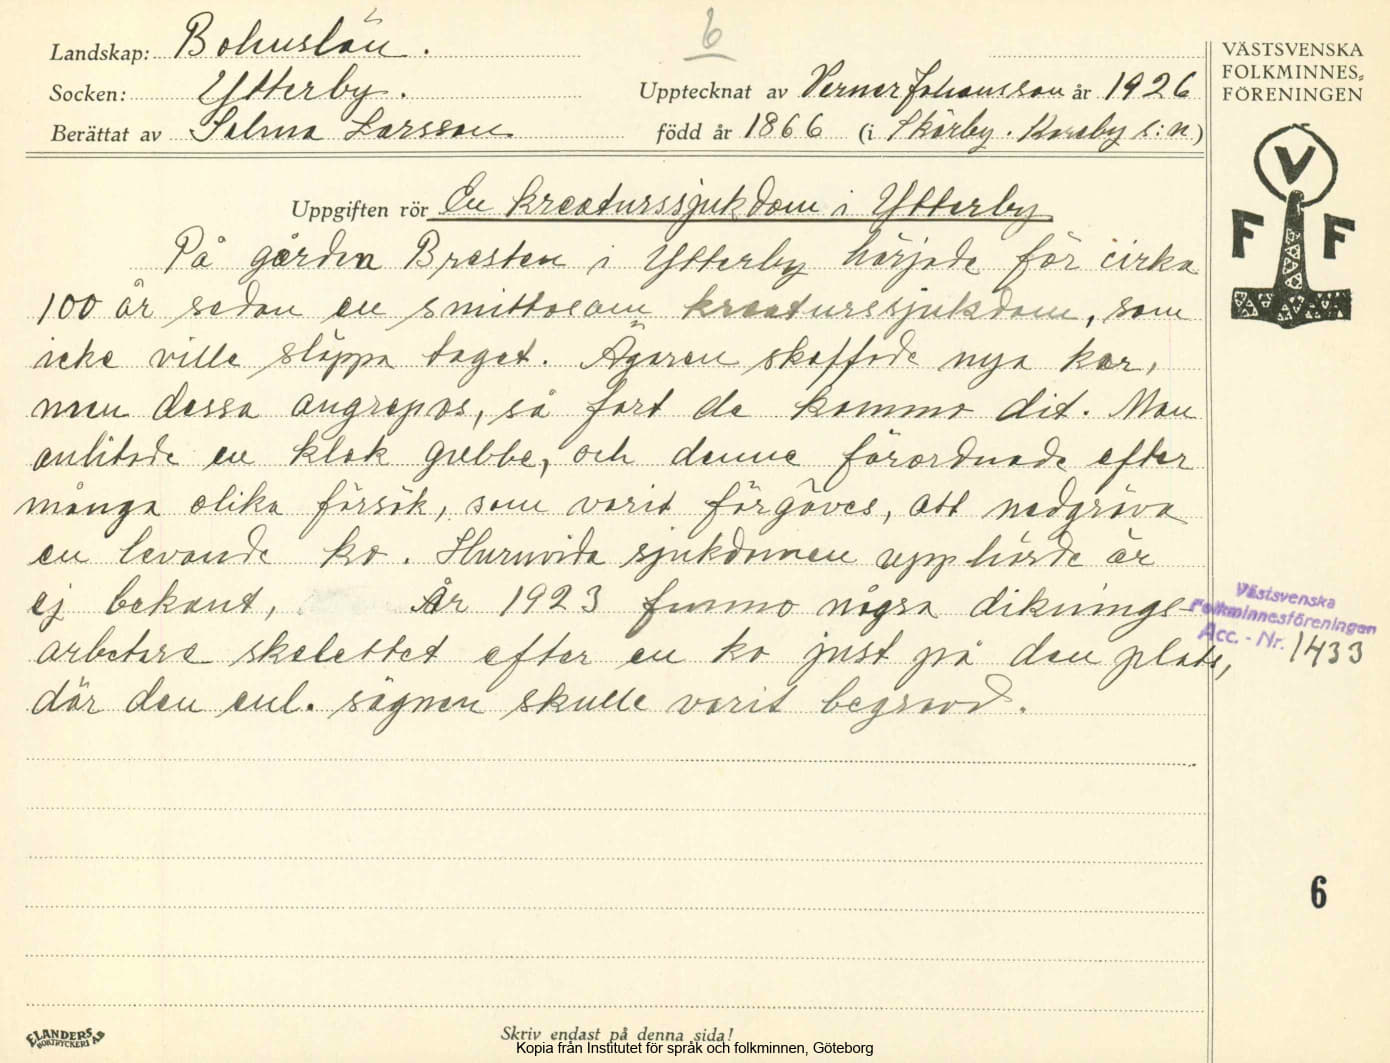 6
Landskap: Bohuslän.
Socken: Ytterby.
Upptecknat av Verner Johansson år 1926
Berättat av Selma Larsson född år 1866 (i Skårby. Kareby s:n)
VÄSTSVENSKA
FOLKMINNES-
FÖRENINGEN
V
F F
Uppgiften rör En kreaturssjukdom i Ytterby
På gården Bresten i Ytterby härjade för cirka
100 år sedan en smittosam kreaturssjukdom, som
icke ville släppa taget. Ägaren skaffade nya kor,
men dessa angrepos, så fort de kommo dit. Man
anlitade en klok gubbe, och denne förordnade efter
många olika försök, som varit förgäves, att nedgräva
en levande ko. Huruvida sjukdomen upphörde är
ej bekant, År 1923 funno några diknings-
arbetare skelettet efter en ko just på den plats,
där den enl. sägnen skulle varit begravd.
Västsvenska
Folkminnesföreningen
Acc. - Nr. 1433
6
ELANDERS
BOKTRYCKERI AB
Skriv endast på denna sida!
Kopia från Institutet för språk och folkminnen, Göteborg